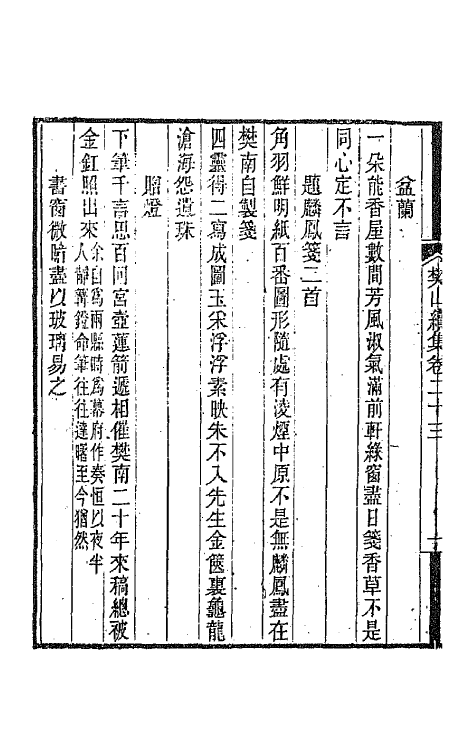 樊山續集卷二十三
盆蘭
一朵能香屋數間芳風淑氣滿前軒綠窗盡日箋香草不是
同心定不言
題麟鳳箋二首
角羽鮮明紙百番圖形隨處有淩煙中原不是無麟鳳盡在
樊南自製箋
四靈得二寫成圖玉采浮浮素映朱不入先生金篋裏龜龍
滄海怨遺珠
贈燈
下筆千言思百回宮壺蓮箭遞相催樊南二十年來稿總被
金釭照出來余自爲兩縣時爲幕府作奏恒以夜半
人靜篝鐙命筆往往達曙至今猶然
書窗微暗盡以玻璃易之